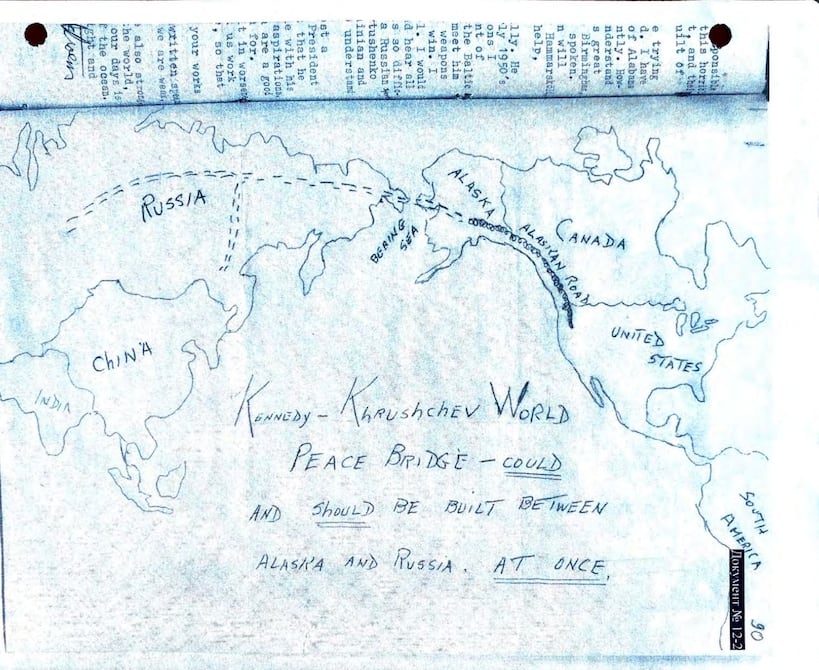 this horri
t, and the
uilt of
e trying
d. I have
of Alabam
ntly. How
nderstand
s great
Birmingha
spoken.
n will
Hammarsk
help,
lly. He
ly 1950's
ons. I
nt of
the Baltic
meet him
weapons
win.
l. I would
d hear all
s so diffic
a Russian
tushenko
inian and
understand
st a
President
that he
e with his
nspiration
are a good
t in worse
us work
, so that
your works
written spe
we are wea
he world,
our days is
f the ocean.
ght and
RUSSIA
ALASKA
BERING
SEA
ALASKAN ROAD
CANADA
CHINA
INDIA
UNITED
STATES
KENNEDY - KHRUSHCHEV WORLD
PEACE BRIDGE - COULD
AND SHOULD BE BUILT BETWEEN
ALASKA AND RUSSIA. AT ONCE.
SOUTH
AMERICA
Документ № 12-2
90